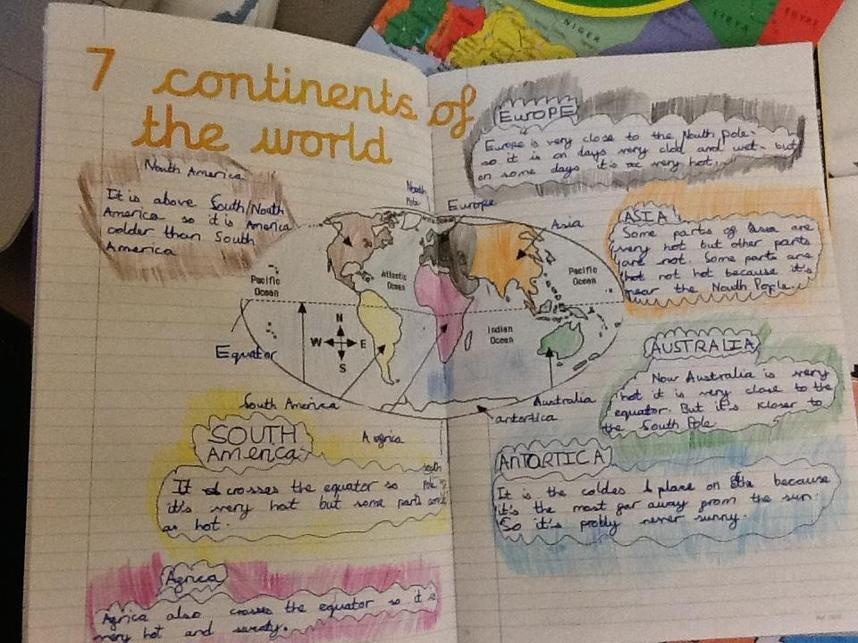 7 continents of
the world
North America
It is above South/North
America so it is America
colder than South
America
EUROPE
Europe is very close to the North pole-
so it is on days very clod and wet- but
on some days it's very hot.
ASIA
Some parts of Asia are
very hot but other parts
are not. Some parts are
that not hot because it's
near the North Pople.
AUSTRALIA
Now Australia is very
hot it is very close to the
equator. But it's kloser to
the South Pole
ANTORTICA
It is the coldes place on because
it's the most far away from the sun.
So it's probly never sunny.
North
Pole
Europe
Asia
Pacific
Ocean
Atlantic
Ocean
Pacific
Ocean
Indian
Ocean
N
W E
S
Equator
South America
Australia
antortica
Africa
South
SOUTH
America
It crosses the equator so
it's very hot but some parts
as hot.
Africa
Africa also crosses the equator so it is
very hot and
NIGER
LIBYA
EGYPT